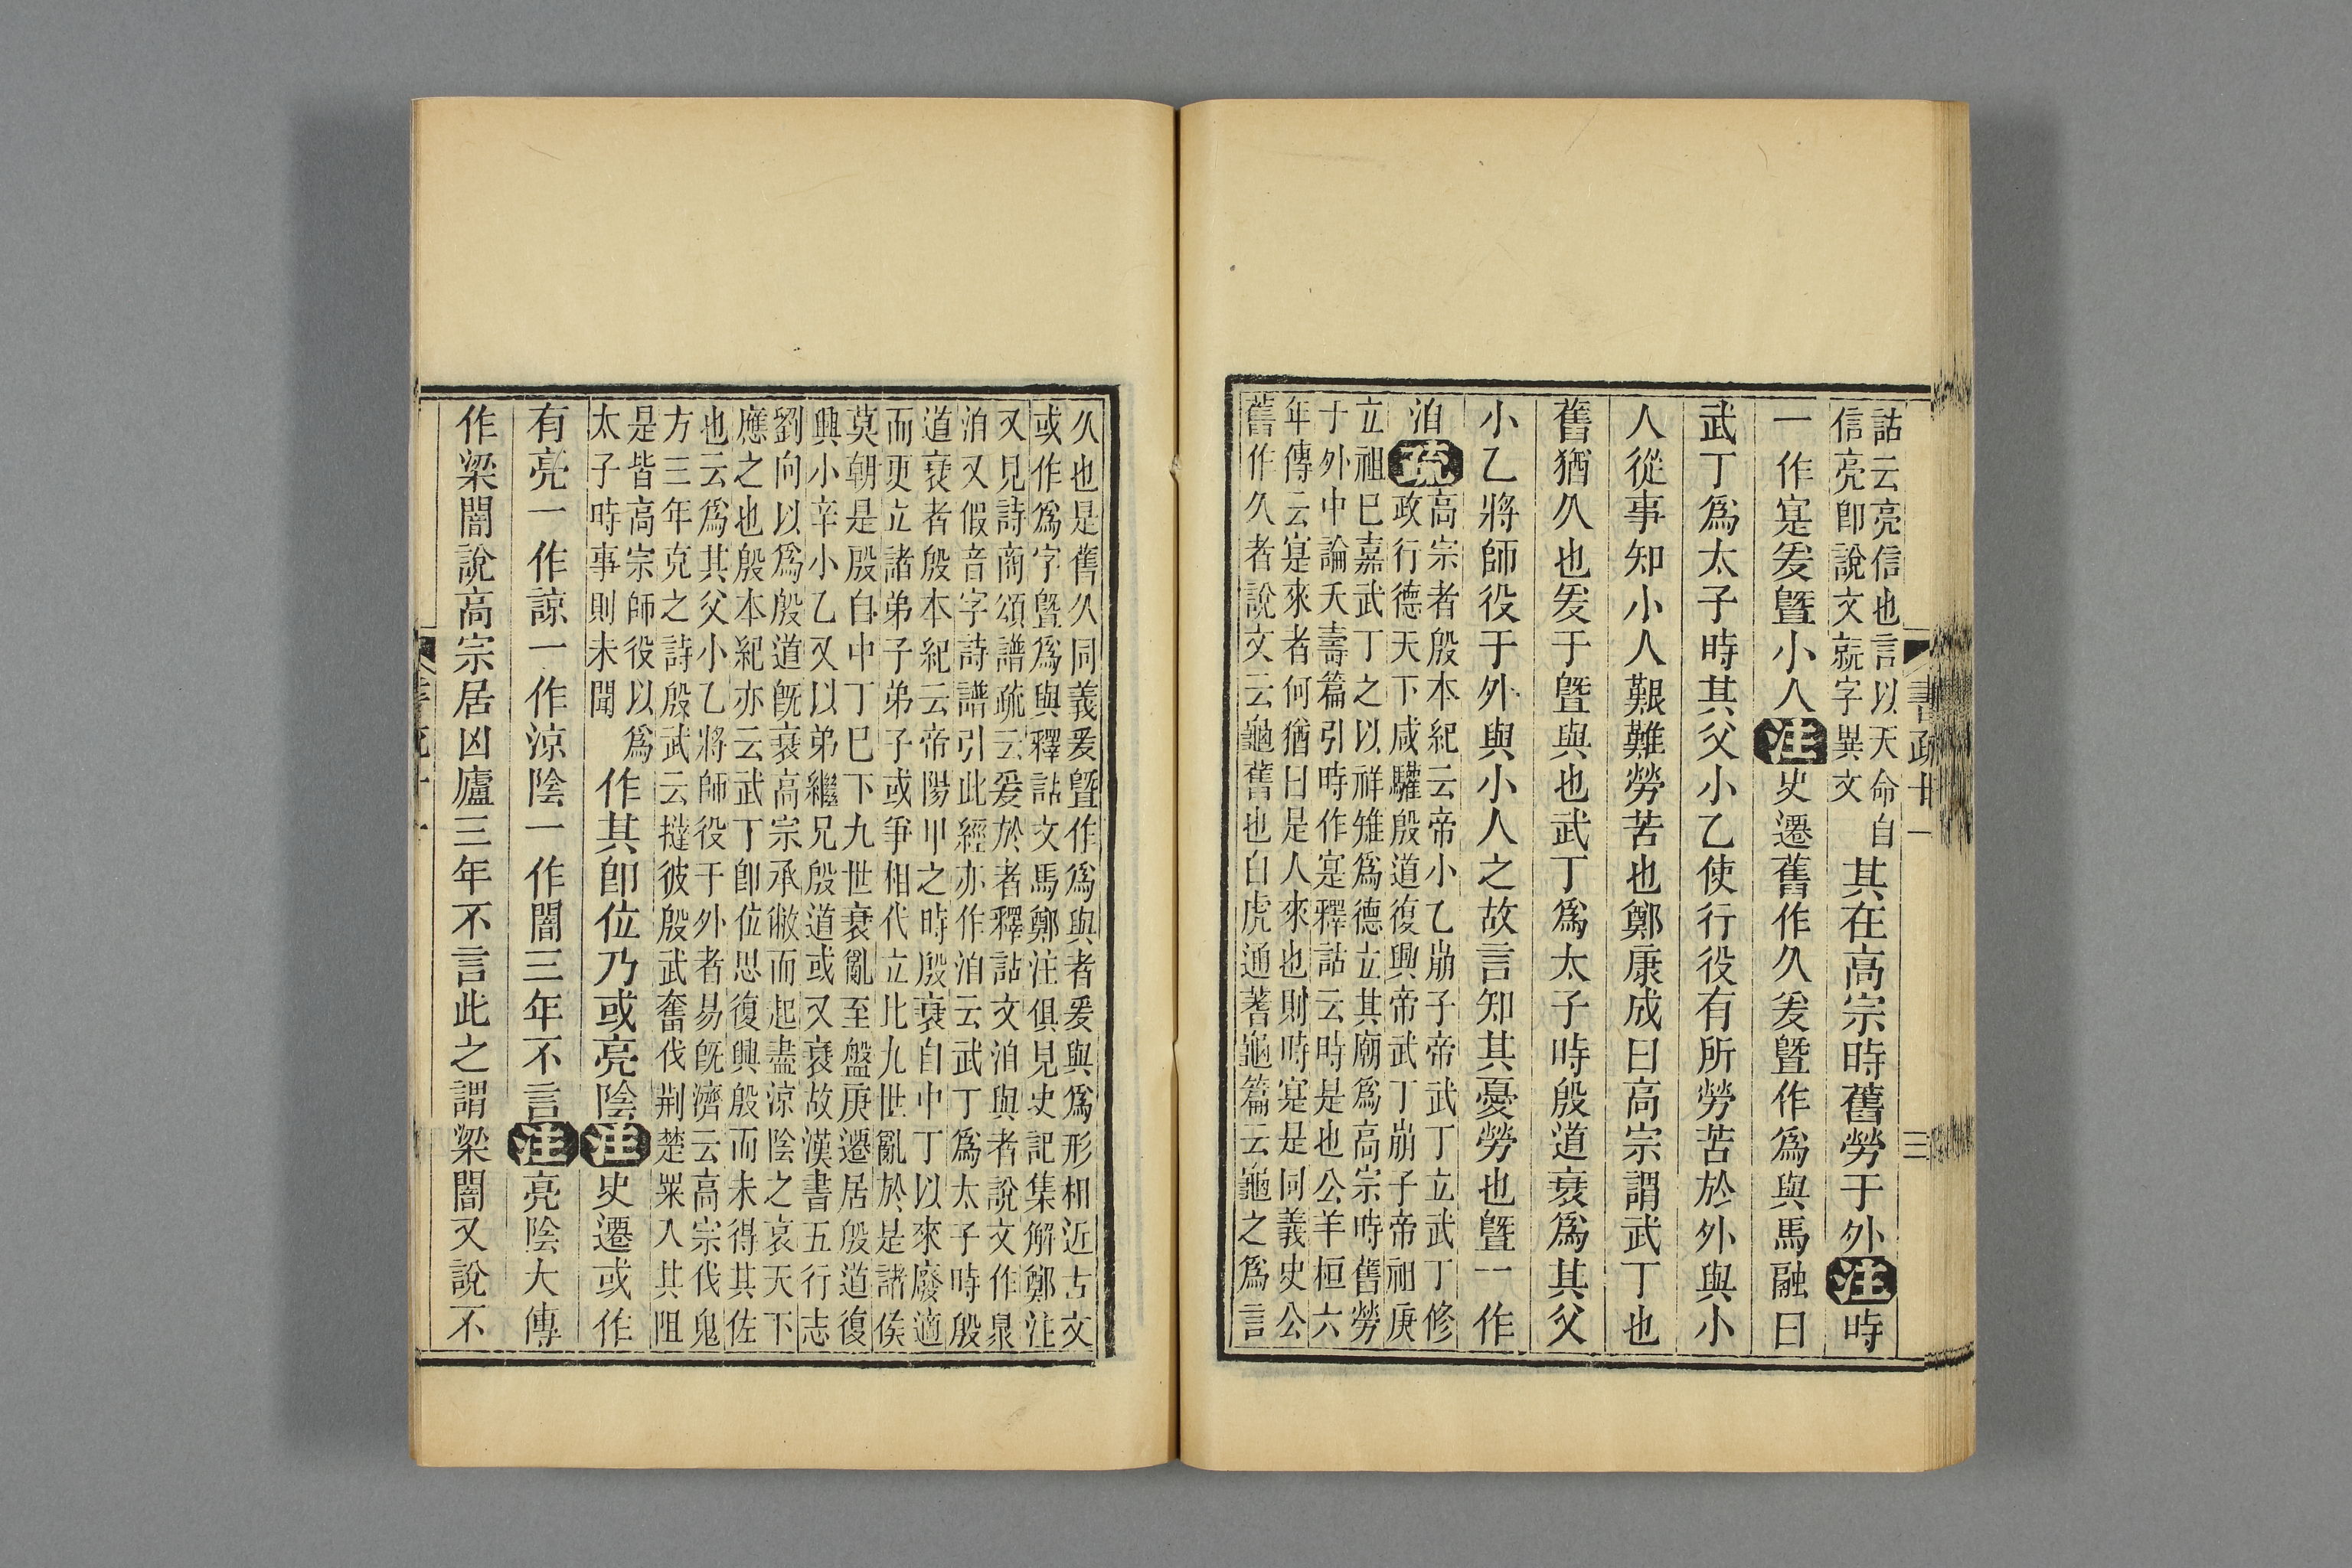 詁云亮信也言以天命自
信亮卽說文就字異文
其在高宗時舊勞于外注時
一作寔爰曁小人注史遷舊作久爰曁作爲與馬融曰
武丁爲太子時其父小乙使行役有所勞苦於外與小
人從事知小人艱難勞苦也鄭康成曰高宗謂武丁也
舊猶久也爰于曁與也武丁爲太子時殷道衰爲其父
小乙將師役于外與小人之故言知其憂勞也曁一作
洎疏
高宗者殷本紀云帝小乙崩子帝武丁立武丁修
政行德天下咸驩殷道復興帝武丁崩子帝祖庚
立祖巳嘉武丁之以祥雉爲德立其廟爲高宗時舊勞
于外中論夭壽篇引時作寔釋詁云時是也公羊桓六
年傳云寔來者何猶曰是人來也則時寔是同義史公
舊作久者說文云龜舊也白虎通蓍龜篇云龜之爲言
書疏廿一
三
久也是舊久同義爰曁作爲與者爰與爲形相近古文
或作爲字曁爲與釋詁文馬鄭注俱見史記集解鄭注
又見詩商頌譜疏云爰於者釋詁文洎與者說文作臮
洎又假音字詩譜引此經亦作洎云武丁爲太子時殷
道衰者殷本紀云帝陽甲之時殷衰自中丁以來廢適
而更立諸弟子弟子或爭相代立比九世亂於是諸侯
莫朝是殷自中丁巳下九世衰亂至盤庚遷居殷道復
興小辛小乙又以弟繼兄殷道或又衰故漢書五行志
劉向以爲殷道旣衰高宗承敝而起盡涼陰之哀天下
應之也殷本紀亦云武丁卽位思復興殷而未得其佐
也云爲其父小乙將師役于外者易旣濟云高宗伐鬼
方三年克之詩殷武云撻彼殷武奮伐荆楚冞入其阻
是皆高宗師役以爲
太子時事則未聞
作其卽位乃或亮陰注史遷或作
有亮一作諒一作涼陰一作闇三年不言注亮陰大傳
作梁闇說高宗居凶廬三年不言此之謂梁闇又說不